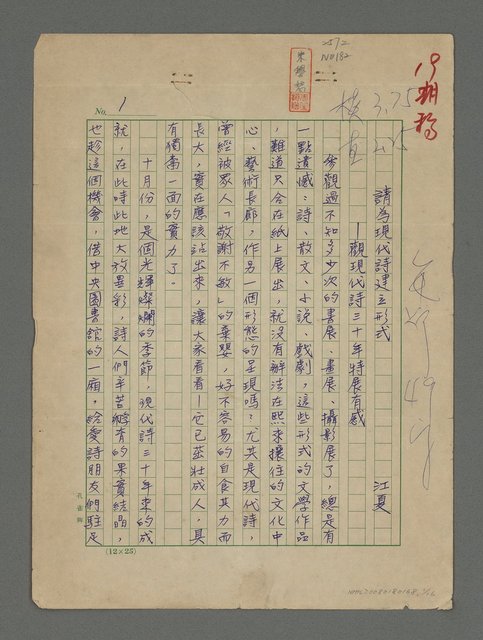 2512
NO182
19期稿
橫 3.75
直 2.5
No. 1
請為現代詩建立形式
—觀現代詩三十年特展有感
江夏
參觀過不知多少次的書展、畫展、攝影展了,總是有
一點遺憾:詩、散文、小說、戲劇,這些形式的文學作品
,難道只合在紙上展出,就沒有辦法在熙來攘往的文化中
心、藝術長廊,作另一個形態的呈現嗎?尤其是現代詩,
曾經被眾人「敬謝不敏」的棄嬰,好不容易的自食其力而
長大,實在應該站出來,讓大家看看—它已茁壯成人,具
有獨當一面的實力了。
十月份,是個光輝燦爛的季節,現代詩三十年來的成
就,在此時此地大放異彩,詩人們辛苦孵育的果實結晶,
也趁這個機會,借中央圖書館的一廂,給愛詩朋友們駐足
孔雀牌
(12×25)